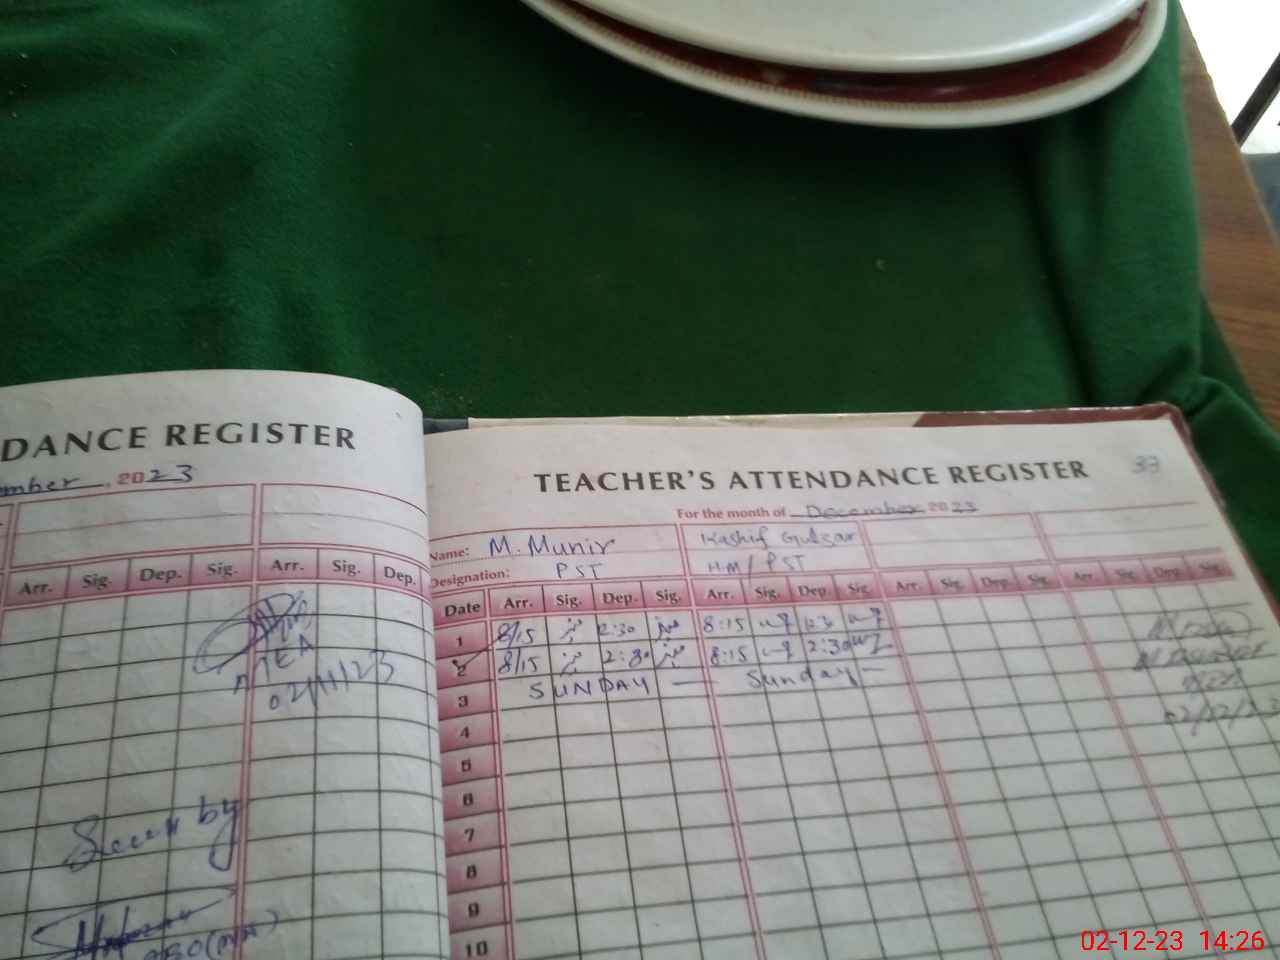 DANCE REGISTER
mber, 2023
Arr. Sig. Dep. Sig. Arr. Sig. Dep.
AEA
02/11/23
Seen by
TEACHER'S ATTENDANCE REGISTER 33
For the month of December 2023
Name: M. Munir Kashif Gulzar
Designation: PST HM/PST
Date Arr. Sig. Dep. Sig. Arr. Sig. Dep. Sig. Arr. Sig. Dep. Sig. Arr. Sig. Dep. Sig.
1 8/15 2:30 8:15
2 8/15 2:30 8:15 2:30
3 SUNDAY Sunday
02/12/23
4
5
6
7
8
9
10
02-12-23 14:26